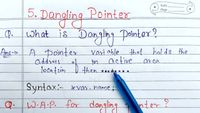 5. Dangling Pointer
Q. What is Dangling Pointer?
Ans:- A pointer variable that holds the
address of an active area
location, then
Syntax:- *var.name;
Q. W.A.P. for dangling pointer?